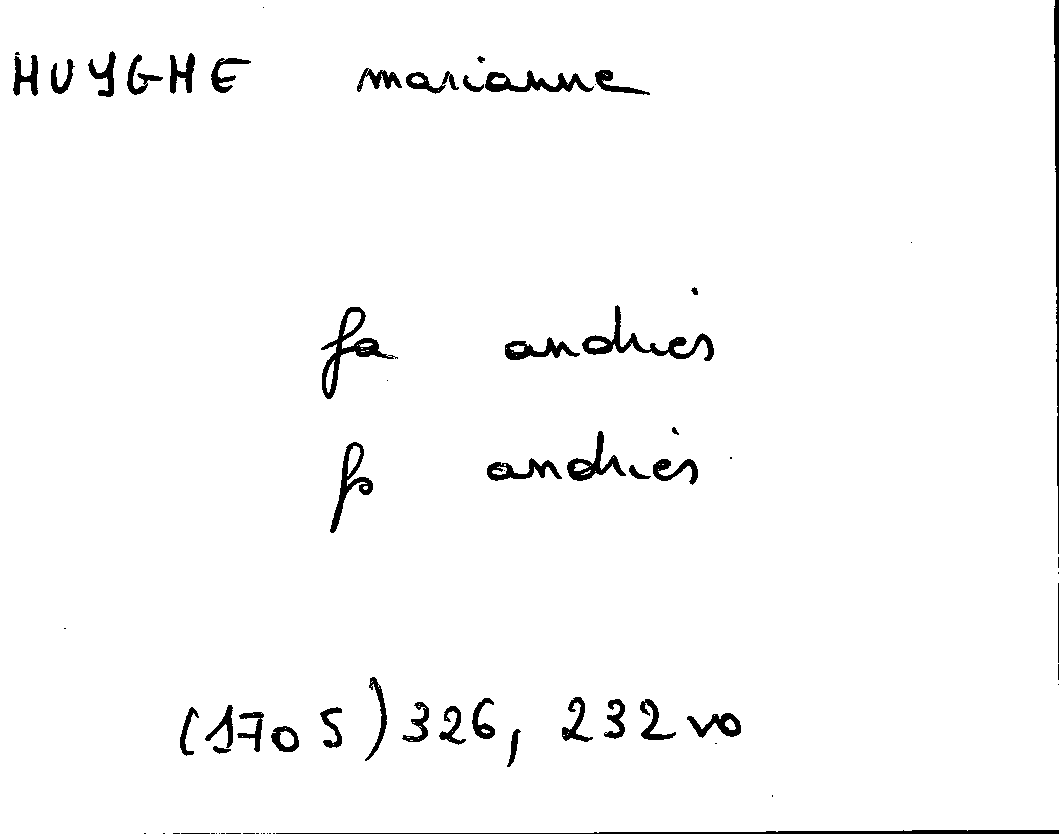 HUYGHE marianne
fa andries
fs andries
(1705) 326, 232 vo